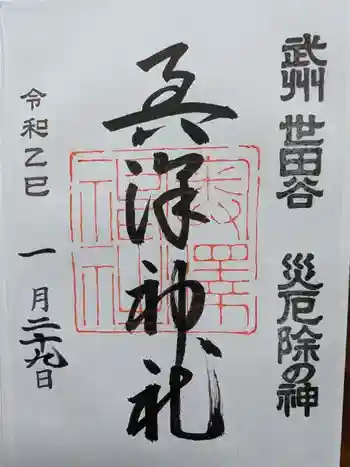 武州 世田谷 災厄除の神
奥澤神社
令和乙巳 一月二十九日
奥澤
神社